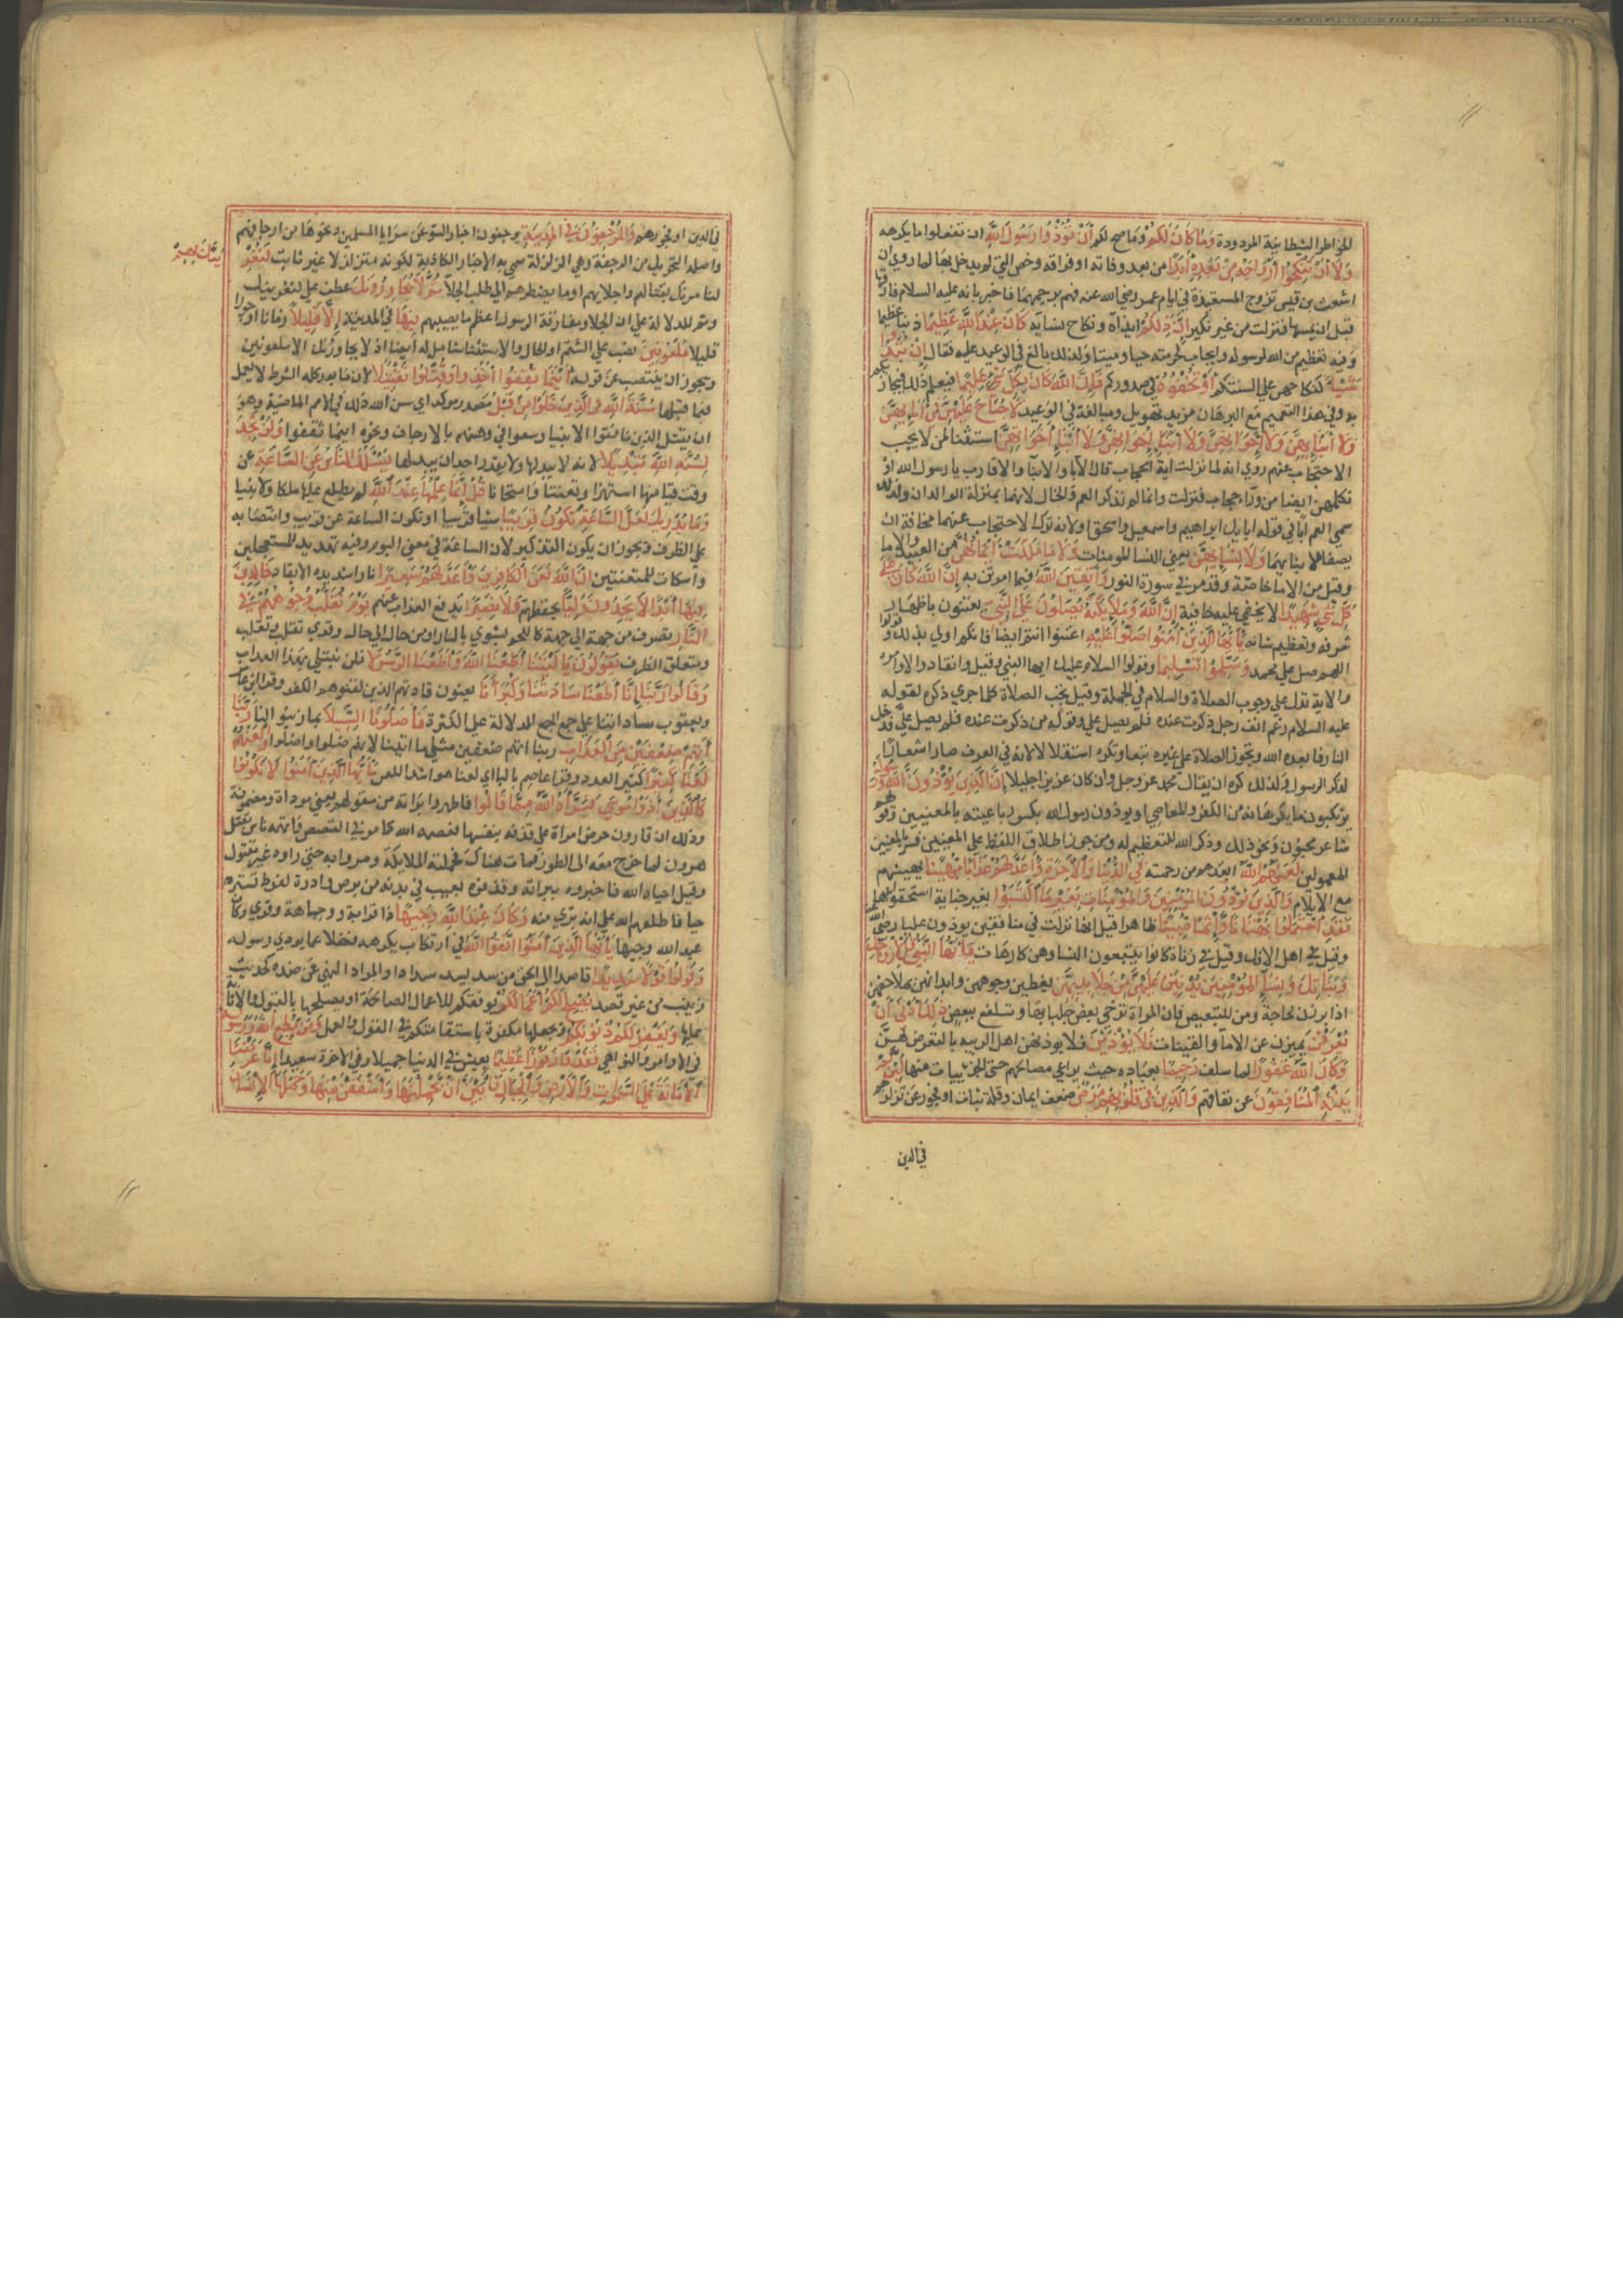 الخواطر الشيطانية المردودة وَمَا كَانَ لَكُمْ وما صح لكم أَنْ تُؤْذُوا رَسُولَ اللَّهِ ان تفعلوا ما يكرهه
وَلَا أَنْ تَنْكِحُوا أَزْوَاجَهُ مِنْ بَعْدِهِ أَبَدًا من بعد وفاته او فراقه وخص التي لم يدخل بها لما روي ان
اشعث بن قيس تزوج المستعيذة في ايام عمر رضي الله عنه فهم برجمهما فاخبر بانه عليه السلام فارقها
قبل ان يمسها فتركت من غير نكير إِنَّ ذَلِكُمْ ايذاه ونكاح نسايه كَانَ عِنْدَ اللَّهِ عَظِيمًا ذنبا عظيما
وفيه تعظيم من الله لرسوله وايجاب لحرمته حيا وميتا ولذلك بالغ في الوعيد عليه فقال إِنْ تُبْدُوا
شَيْئًا كنكاحهن على السنتكم أَوْ تُخْفُوهُ في صدوركم فَإِنَّ اللَّهَ كَانَ بِكُلِّ شَيْءٍ عَلِيمًا فيعلم ذلك فيجازيكم
به وفي هذا التعميم مع البرهان مزيد تهويل ومبالغة في الوعيد لَا جُنَاحَ عَلَيْهِنَّ فِي آبَائِهِنَّ
وَلَا أَبْنَائِهِنَّ وَلَا إِخْوَانِهِنَّ وَلَا أَبْنَاءِ إِخْوَانِهِنَّ وَلَا أَبْنَاءِ أَخَوَاتِهِنَّ استثنا لمن لا يجب
الاحتجاب عنهم روي انه لما نزلت اية الحجاب قال الابا والابنا والاقارب يا رسول الله او
نكلمهن ايضا من وراء حجاب فنزلت وانما لم تذكر العم والخال لانهما بمنزلة الوالدان ولذلك
سمي العم ابا في قوله ابايك ابراهيم واسمعيل واسحق او لانه ترك الاحتجاب عنهما مخافة ان
يصفا لابنايهما وَلَا نِسَائِهِنَّ يعني النسا المومنات وَلَا مَا مَلَكَتْ أَيْمَانُهُنَّ من العبيد والاما
وقيل من الاما خاصة وقد مر في سورة النور وَاتَّقِينَ اللَّهَ فيما امرتن به إِنَّ اللَّهَ كَانَ عَلَى
كُلِّ شَيْءٍ شَهِيدًا لا يخفى عليه خافية إِنَّ اللَّهَ وَمَلَائِكَتَهُ يُصَلُّونَ عَلَى النَّبِيِّ يعتنون باظهار
شرفه وتعظيم شانه يَا أَيُّهَا الَّذِينَ آمَنُوا صَلُّوا عَلَيْهِ اعتنوا انتم ايضا فانكم اولي بذلك وقولوا
اللهم صل على محمد وَسَلِّمُوا تَسْلِيمًا وقولوا السلام عليك ايها النبي وقيل وانقادوا لاوامره
والاية تدل على وجوب الصلاة والسلام في الجملة وقيل يجب الصلاة كلما جري ذكره لقوله
عليه السلام رغم انف رجل ذكرت عنده فلم يصل علي وقوله من ذكرت عنده فلم يصل علي فدخل
النار فابعده الله وتجوز الصلاة على غيره تبعا وتكره استقلالا لانه في العرف صار شعارا
لذكر الرسول ولذلك كره ان يقال محمد عز وجل وان كان عزيزا جليلا إِنَّ الَّذِينَ يُؤْذُونَ اللَّهَ وَرَسُولَهُ
يرتكبون ما يكرهانه من الكفر والمعاصي او يوذون رسول الله بكسر رباعيته وقولهم
شاعر مجنون ونحو ذلك وذكر الله للتعظيم له ومن جوز اطلاق اللفظ على المعنيين فسره بالمعنيين
المعمولين لَعَنَهُمُ اللَّهُ ابعدهم من رحمته فِي الدُّنْيَا وَالْآخِرَةِ وَأَعَدَّ لَهُمْ عَذَابًا مُهِينًا يهينهم
مع الايلام وَالَّذِينَ يُؤْذُونَ الْمُؤْمِنِينَ وَالْمُؤْمِنَاتِ بِغَيْرِ مَا اكْتَسَبُوا بغير جناية استحقوا بها
فَقَدِ احْتَمَلُوا بُهْتَانًا وَإِثْمًا مُبِينًا ظاهرا قيل انها نزلت في منافقين يوذون عليا رضي الله
وقيل في اهل الافك وقيل في زناة كانوا يتبعون النسا وهن كارهات يَا أَيُّهَا النَّبِيُّ قُلْ لِأَزْوَاجِكَ
وَبَنَاتِكَ وَنِسَاءِ الْمُؤْمِنِينَ يُدْنِينَ عَلَيْهِنَّ مِنْ جَلَابِيبِهِنَّ يغطين وجوههن وابدانهن بملاحفهن
اذا برزن لحاجة ومن للتبعيض فان المراة ترخي بعض جلبابها وتتلفع ببعض ذَلِكَ أَدْنَى أَنْ
يُعْرَفْنَ يميزن عن الاما والقينات فَلَا يُؤْذَيْنَ فلا يوذيهن اهل الريبه بالتعرض لهن
وَكَانَ اللَّهُ غَفُورًا لما سلف رَحِيمًا بعباده حيث يراعي مصالحهم حتى الجزييات منها لَئِنْ لَمْ
يَنْتَهِ الْمُنَافِقُونَ عن نفاقهم وَالَّذِينَ فِي قُلُوبِهِمْ مَرَضٌ ضعف ايمان وقلة ثبات او فجور عن تزلزلهم
في الدين
في الدين او فجورهم وَالْمُرْجِفُونَ فِي الْمَدِينَةِ يرجفون اخبار السوء عن سرايا المسلمين ونحوها من ارجافهم
واصله التحريك من الرجفة وهي الزلزلة سمي به الاخبار الكاذبة لكونه متزلزلا غير ثابت لَنُغْرِيَنَّكَ بِهِمْ
لنا مرنك بقتالهم واجلايهم او ما يضطرهم الى طلب الجلا ثُمَّ لَا يُجَاوِرُونَكَ عطف على لنغرينك
وثم للدلالة على ان الجلا ومفارقة الرسول اعظم ما يصيبهم فِيهَا في المدينة إِلَّا قَلِيلًا زمانا او جوارا
قليلا مَلْعُونِينَ نصب على الشتم او الحال والاستثنا شامل له ايضا اذ لا يجاورنك الا ملعونين
ويجوز ان ينتصب عن قوله أَيْنَمَا ثُقِفُوا أُخِذُوا وَقُتِّلُوا تَقْتِيلًا لان ما بعد كلمة الشرط لا يعمل
فيما قبلها سُنَّةَ اللَّهِ فِي الَّذِينَ خَلَوْا مِنْ قَبْلُ مصدر موكد اي سن الله ذلك في الامم الماضية وهو
ان يقتل الذين نافقوا الانبيا وسعوا في وهنهم بالارجاف ونحوه اينما ثقفوا وَلَنْ تَجِدَ
لِسُنَّةِ اللَّهِ تَبْدِيلًا لانه لا يبدلها ولا يقدر احد ان يبدلها يَسْأَلُكَ النَّاسُ عَنِ السَّاعَةِ عن
وقت قيامها استهزا وتعنتا وامتحانا قُلْ إِنَّمَا عِلْمُهَا عِنْدَ اللَّهِ لم يطلع عليها ملكا ولا نبيا
وَمَا يُدْرِيكَ لَعَلَّ السَّاعَةَ تَكُونُ قَرِيبًا شيا قريبا او تكون الساعة عن قريب وانتصابه
على الظرف ويجوز ان يكون التذكير لان الساعة في معنى اليوم وفيه تهديد للمستعجلين
واسكات للمتعنتين إِنَّ اللَّهَ لَعَنَ الْكَافِرِينَ وَأَعَدَّ لَهُمْ سَعِيرًا نارا شديده الايقاد خَالِدِينَ
فِيهَا أَبَدًا لَا يَجِدُونَ وَلِيًّا يحفظهم وَلَا نَصِيرًا يدفع العذاب عنهم يَوْمَ تُقَلَّبُ وُجُوهُهُمْ فِي
النَّارِ تصرف من جهة الى جهة كاللحم يشوي بالنار او من حال الى حال وقري تقلب وتقلب
ومتعلق الظرف يَقُولُونَ يَا لَيْتَنَا أَطَعْنَا اللَّهَ وَأَطَعْنَا الرَّسُولَا فلن نبتلي بهذا العذاب
وَقَالُوا رَبَّنَا إِنَّا أَطَعْنَا سَادَتَنَا وَكُبَرَاءَنَا يعنون قادتهم الذين لقنوهم الكفر وقرا ابن عامر
ويعقوب ساداتنا على جمع الجمع للدلالة على الكثرة فَأَضَلُّونَا السَّبِيلَا بما زينوا لنا رَبَّنَا
آتِهِمْ ضِعْفَيْنِ مِنَ الْعَذَابِ ربنا اتهم ضعفين مثلي ما اتيتنا لانهم ضلوا واضلوا وَالْعَنْهُمْ
لَعْنًا كَبِيرًا كثير العدد وقرا عاصم بالبا اي لعنا هو اشد اللعن يَا أَيُّهَا الَّذِينَ آمَنُوا لَا تَكُونُوا
كَالَّذِينَ آذَوْا مُوسَى فَبَرَّأَهُ اللَّهُ مِمَّا قَالُوا فاظهر براته من مقولهم يعني موداه ومضمونه
وذلك ان قارون حرض امراة على قذفه بنفسها فعصمه الله كما مر في القصص واتهمه ناس بقتل
هرون لما خرج معه الى الطور فمات هناك فحملته الملايكة ومروا به حتى راوه غير مقتول
وقيل احياه الله فاخبره ببراته وقذفوه بعيب في بدنه من برص او ادرة لفرط تستره
حيا فاطلعهم الله على انه بري منه وَكَانَ عِنْدَ اللَّهِ وَجِيهًا ذا قرابة ووجاهة وقري وكان
عبد الله وجيها يَا أَيُّهَا الَّذِينَ آمَنُوا اتَّقُوا اللَّهَ في ارتكاب ما يكرهه فضلا عما يوذي رسوله
وَقُولُوا قَوْلًا سَدِيدًا قاصدا الى الحق من سد يسد سدادا والمراد النهي عن ضده كحديث
زينب من غير قصد يُصْلِحْ لَكُمْ أَعْمَالَكُمْ يوفقكم للاعمال الصالحة او يصلحها بالقبول والاثابة
عليها وَيَغْفِرْ لَكُمْ ذُنُوبَكُمْ ويجعلها مكفرة باستقامتكم في القول والعمل وَمَنْ يُطِعِ اللَّهَ وَرَسُولَهُ
في الاوامر والنواهي فَقَدْ فَازَ فَوْزًا عَظِيمًا يعيش في الدنيا حميدا وفي الاخرة سعيدا إِنَّا عَرَضْنَا
الْأَمَانَةَ عَلَى السَّمَوَاتِ وَالْأَرْضِ وَالْجِبَالِ فَأَبَيْنَ أَنْ يَحْمِلْنَهَا وَأَشْفَقْنَ مِنْهَا وَحَمَلَهَا الْإِنْسَانُ